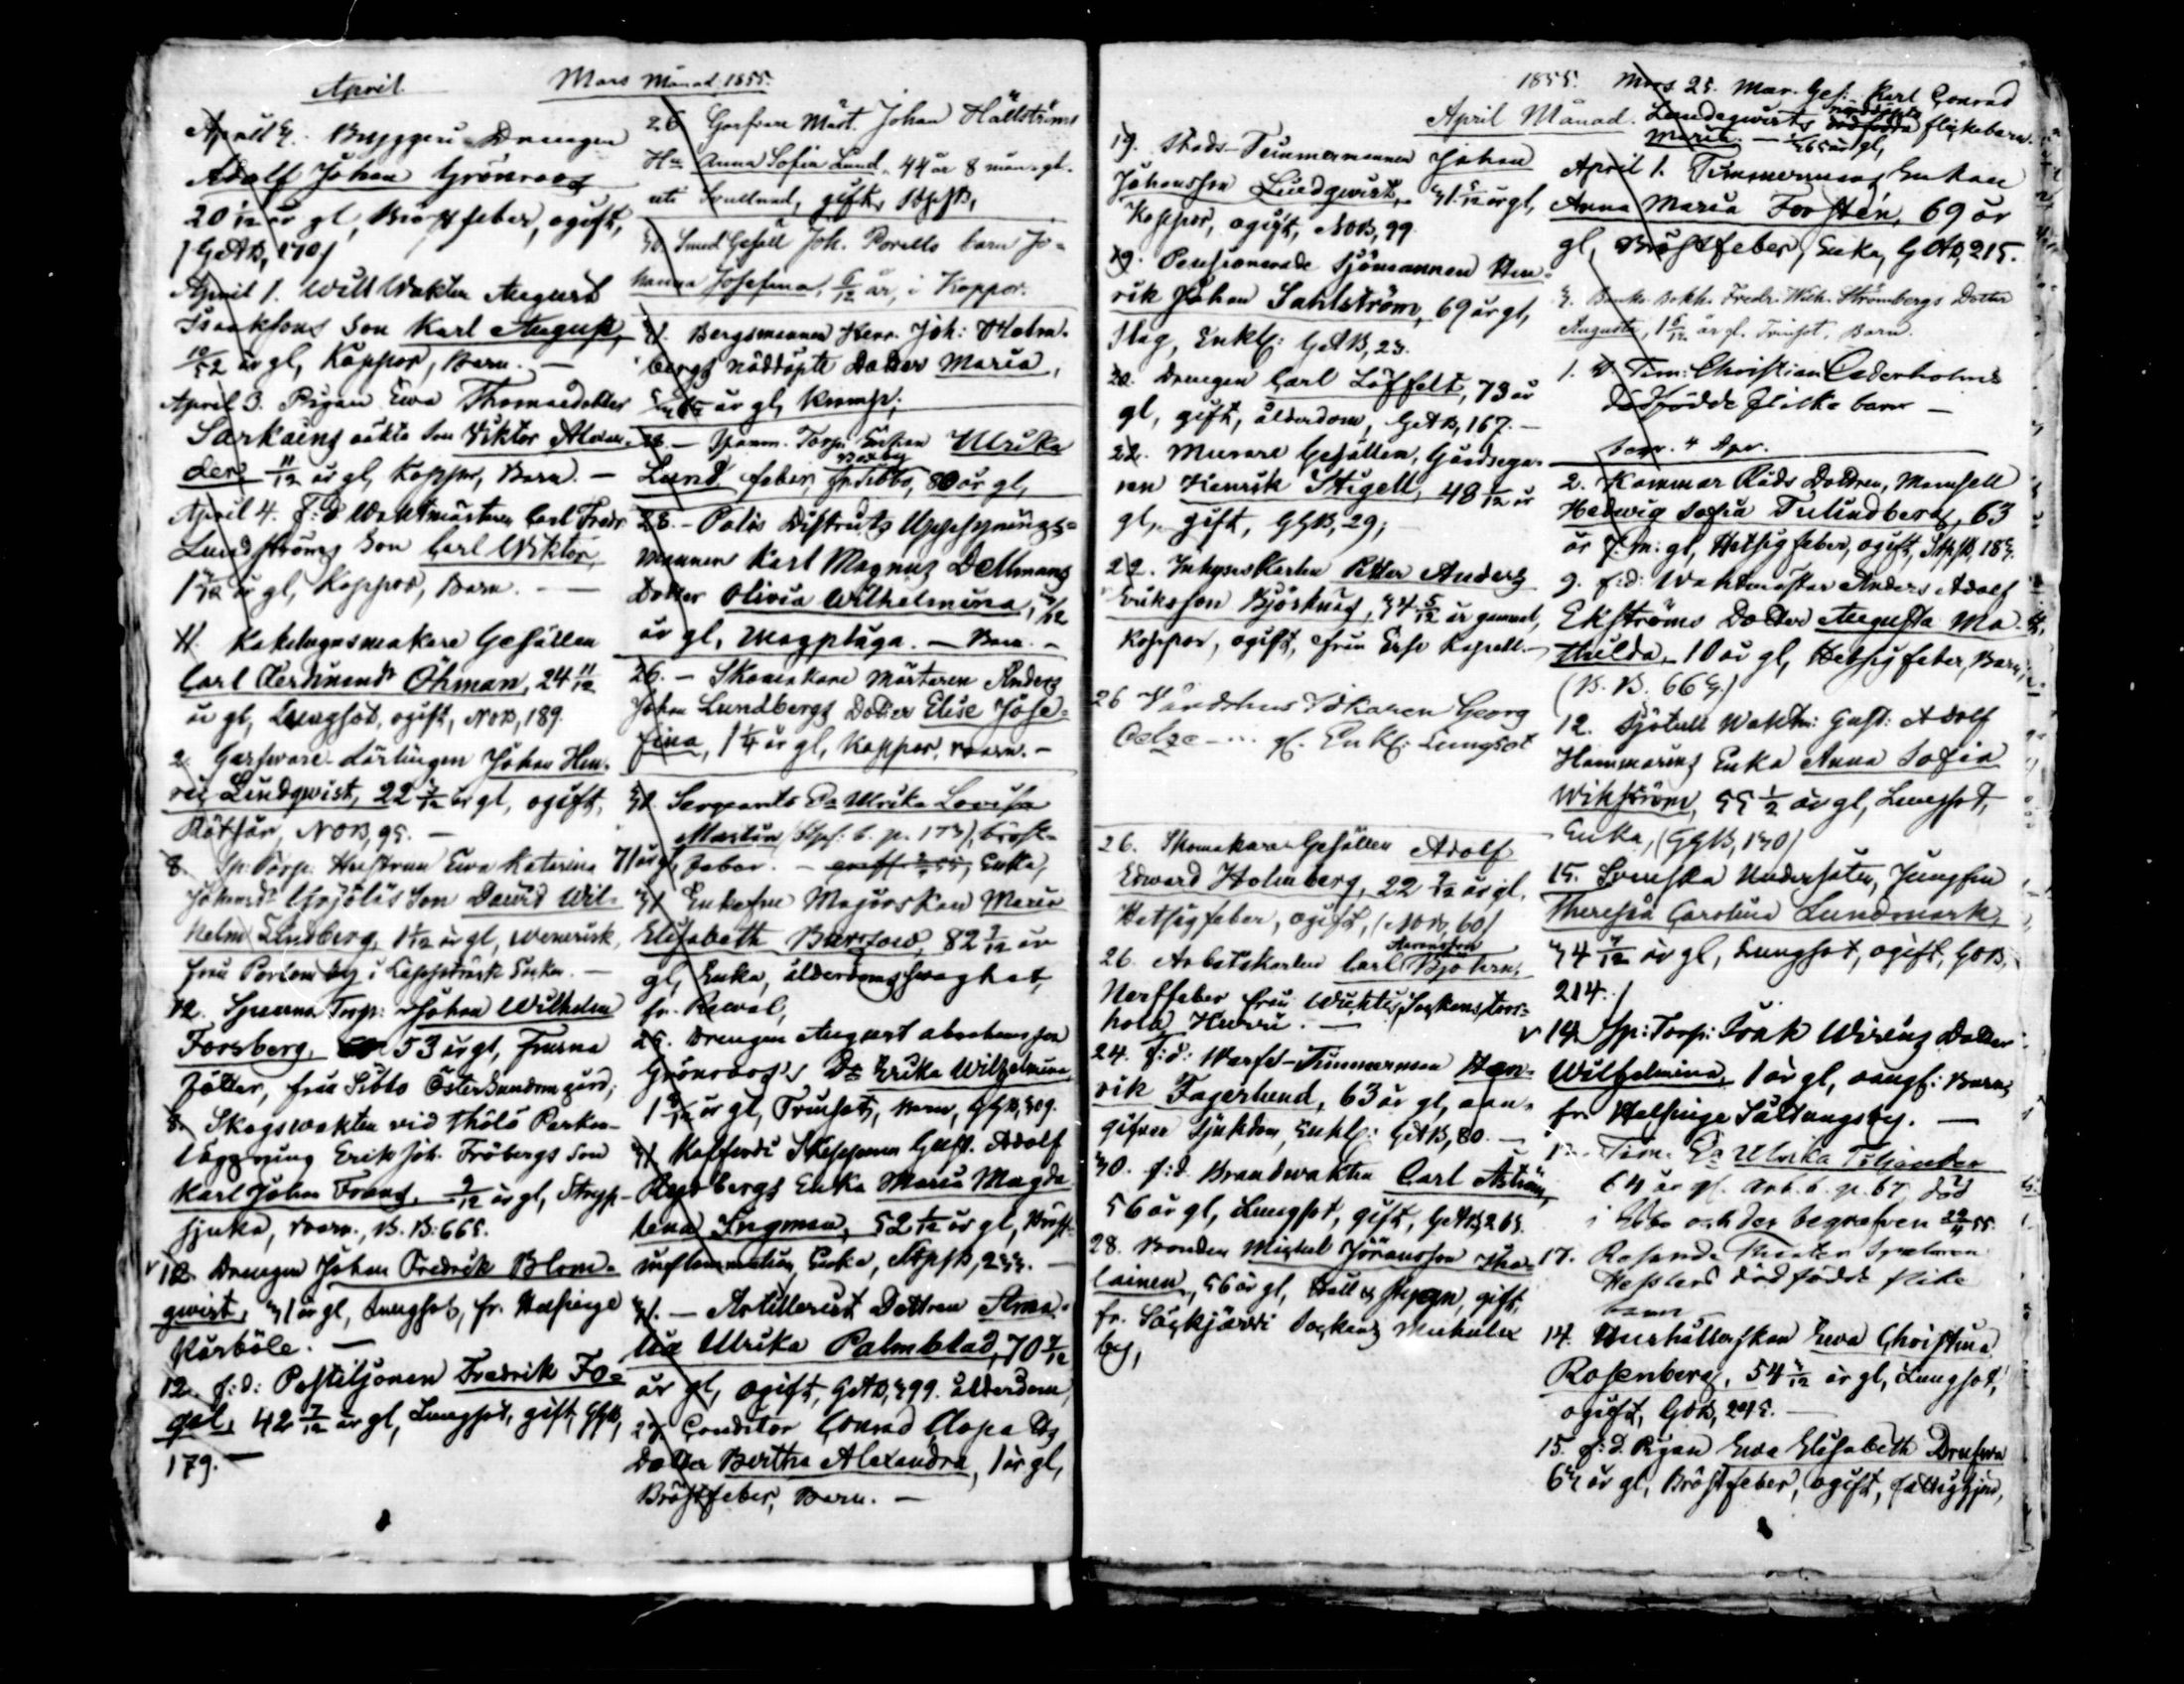 April
April 3. Bryggeri Drengen
Adolf Johan Grönroos
20 1/12 år gl, Bröstfeber, ogift,
April 1. Willl Wakten August
Isaaksons Son Karl August,
år gl, Koppor, Barn. —
April 3. Pigan Ewa Thomasdotter
Sarkains oäkta Son Viktor Alexan-
der 11/12 år gl, Koppor, Barn. —
April 4. F:d Waktmästaren Carl Fredr.
Lundströms Son Carl Wiktor,
år gl, Koppor, Barn. —
11. Kakelugnsmakare Gesällen
Carl Ferdinand Öhman, 24 11/12
år gl, Lungsot, ogift, NOB, 189.
2. Garfware Lärlingen Johan Hen-
ric Lindqwist, 22 år gl, ogift,
Rötfär, NOB, 95. —
8. Sp: Torp: Hustrun Ewa Katarina
Son Dawid Wil-
helm Lindberg, 1 1/12 år gl, Wenerisk,
från Porlom by i Lappträsk Sockn. —
12. Torp: Johan Wilhelm
Forsberg, 53 år gl, Frusna
fötter, från Sibbo Östersundom gård;
8. Skogswakten vid Thölö Parkan-
läggning Erik Joh. Fröbergs Son
Karl Johan Frans, 9/12 år gl, Stryp-
sjuka, Barn. B. B: 665.
12. Drengen Johan Fredrik Blom-
qwist, 31 år gl, Lungsot, fr. Helsinge
Kårböle. —
12. f:d: Postiljonen Fredrik Fo-
gel, 42 7/12 år gl, Lungsot, gift,
179. —
Mars Månad 1855.
26 Garfvare Mäst. Johan Hällströms
Hu Anna Sofia Lund, 44 år 8 mån. gl.
gift,
30 Smed Gesäll Joh. Porells barn Jo-
hanna Josefina, 6/12 år, i Koppor.
31. Bergsmannen Henr. Joh: Holm-
bergs nöddöpte Dotter Maria,
år gl, Kramp;
28. — Torp. Enkan Ulrika
Lund, feber, fr Sibbo, 80 år gl,
Boxby
28. — Polis Distrikts Uppsynings-
mannen Karl Magnus Dellmans
Dotter Olivia Wilhelmina,
år gl, Magplåga. — Barn. —
26. — Skomakare Mästaren Anders
Johan Lundbergs Dotter Elise Jose-
fina, 1 1/4 år gl, Koppor, Barn. —
31 Sergeants Ea Ulrika Lovisa
Martin p. 173), bröst-
71 år gl, feber. — Enka,
31 Enkefru Majorskan Maria
Elisabeth Burtow, 82 7/12 år
gl, Enka, ålderdoms swaghet,
fr. Rewal,
25. Drengen August Abrahamsson
Grönroos's Dr Erika Wilhelmina,
år gl, Trinsot, Barn, GGB, 309.
31 Kofferdi Skepparen Gust. Adolf
Rossbergs Enka Maria Magda-
lena Ingman, 52 1/12 år gl, Bröst-
inflammation, Enka,
31. — Artillerist Dottren Ama-
lia Ulrika Palmblad, 70 7/12
år gl, ogift, GAB, 399. ålderdom,
27 Conditor Conrad
Dotter Bertha Alexandra, 1 år gl,
Bröstfeber, Barn. —
1855.
April Månad.
19. Stads-Timmermannen Johan
Johansson Lindqwist, 31 5/12 år gl,
Koppor, ogift, NOB, 99.
19. Pensionerade Sjömannen Hen-
rik Johan Sahlström, 69 år gl,
Slag, Enkl: GAB, 23.
20. Drengen Carl Löffelt, 73 år
gl, gift, ålderdom, GAB, 167. —
22. Murare Gesällen, Gårdsega-
ren Henrik Stigell, 48 1/12 år
gl, gift, GGB, 29;
22. Inhyses Karlen Petter Anders
Eriksson Björknäs, 34 5/12 år gammal,
Koppor, ogift, från Esbo Kapell. —
26 Vårdshus Idkaren Georg
Oelze — gl. Enkl: Lungsot
26. Skomakare Gesällen Adolf
Edward Holmberg, 22 år gl,
Hetsig feber, ogift, (NOB, 60)
26. Arbetskarlen Carl Björn,
Aaronsson
Nerffeber från Wichtis Sockens
Hurru. —
24. f:d: Warfs-Timmerman Hen-
rik Fagerlund, 63 år gl, oan-
gifven Sjukdom, Enkl: GAB, 80. —
30. f:d. Brandwakten Carl Åström,
56 år gl, Lungsot, gift, GAB, 265.
28. Bonden Michel Jöransson
lainen, 56 år gl, Håll & Stygn, gift,
fr. Säkjärwi Sockens
by,
Mars 25. Mur. Ges: Karl Conrad
Lindeqwists nöddöpta dödfödda flickebarn.
Maria — år gl,
April 1. Timmermans Enkan
Anna Maria Forstén, 69 år
gl, Bröstfeber, Enka, GAB, 215.
3. Bank. Bokh. Fredr. Wilh. Strömbergs Dotter
Augusta, 1 6/12 år gl. Trinsot, Barn.
1. Tim: Christian Cederholms
dödfödde flicke barn —
begr. 4 Apr.
2. Kammar Råds Dottren, Mamsell
Hedwig Sofia Tulindberg, 63
år gl, Hetsig feber, ogift,
9. f:d: Waktmästar Anders Adolf
Ekströms Dotter Augusta Ma-
thilda, 10 år gl, Hetsig feber, Barn;
(B. B. 663.)
12. Sjötull Waktm: Gust: Adolf
Hammarins Enka Anna Sofia
Wikström, 55 1/2 år gl, Lungsot,
Enka, (GGB, 130)
15. Svenska Undersåten, Jungfru
Theresia Carolina Lundmark,
34 år gl, Lungsot, ogift, GOB,
214.
14 Sp: Torp: Isak Wiréns Dotter
Wilhelmina, 1 år gl, oangf: Barn,
fr. Helsinge Sått­ungsby. —
Tim. Ea Ulrika Tiljander
64 år gl. Arb. b. p. 67, död
i Esbo och der begrafven
17. Resande Theater Spelaren
Hesslers dödfödde flicke
barn
14. Hushållerskan Ewa Christina
Rosenberg, 54 år gl, Lungsot,
ogift,
15. f:d. Pigan Ewa Elisabeth
63 år gl, Bröstfeber, ogift,